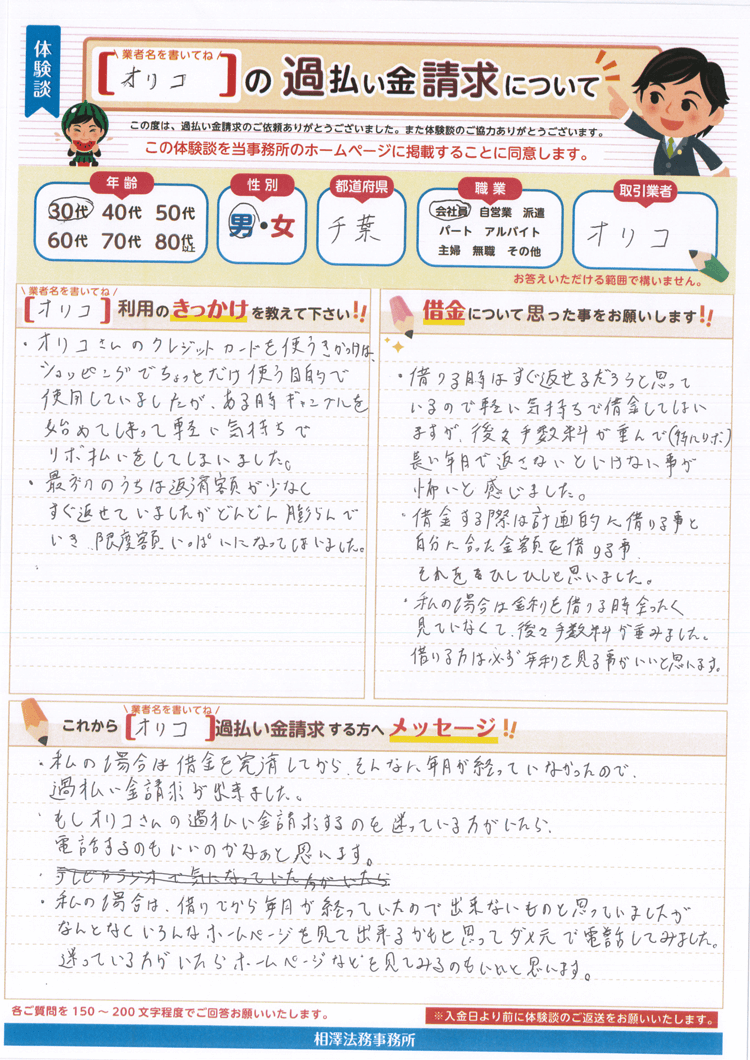 体験談
業者名を書いてね
[オリコ]の過払い金請求について
この度は、過払い金請求のご依頼ありがとうございました。また体験談のご協力ありがとうございます。
この体験談を当事務所のホームページに掲載することに同意します。
年齢
30代 40代 50代
60代 70代 80代以上
性別
男・女
都道府県
千葉
職業
会社員 自営業 派遣
パート アルバイト
主婦 無職 その他
取引業者
オリコ
お答えいただける範囲で構いません。
業者名を書いてね
[オリコ]利用のきっかけを教えて下さい!!
・オリコさんのクレジットカードを使うきかっけは、
ショッピングでちょっとだけ使う目的で
使用していましたが、ある時ギャンブルを
始めてしまって軽い気持ちで
リボ払いをしてしまいました。
・最初のうちは返済額が少なく
すぐ返せていましたがどんどん膨らんで
いき、限度額いっぱいになってしまいました。
借金について思った事をお願いします!!
・借りる時はすぐ返せるだろうと思って
いるので軽い気持ちで借金してしまい
ますが、後々手数料が重んで(特にリボ)
長い年月で返さないといけない事が
怖いと感じました。
・借金する際は計画的に借りる事と
自分に合った金額を借りる事、
それをひしひしと思いました。
・私の場合は金利を借りる時全ったく
見ていなくて、後々手数料が重みました。
借りる方は必ず年利を見る事がいいと思います。
業者名を書いてね
これから[オリコ]過払い金請求する方へメッセージ!!
・私の場合は借金を完済してから、そんなに年月が経っていなかったので、
過払い金請求が出来ました。
・もしオリコさんの過払い金請求するのを迷っている方がいたら、
電話するのもいいのかなぁと思います。
・テレビやラジオで気になっていた方がいたら
・私の場合は、借りてから年月が経っていたので出来ないものと思っていましたが
なんとなくいろんなホームページを見て出来るかもと思ってダメ元で電話してみました。
迷っている方がいたらホームページなどを見てみるのもいいと思います。
各ご質問を150～200文字程度でご回答お願いいたします。
※入金日より前に体験談のご返送をお願いいたします。
相澤法務事務所